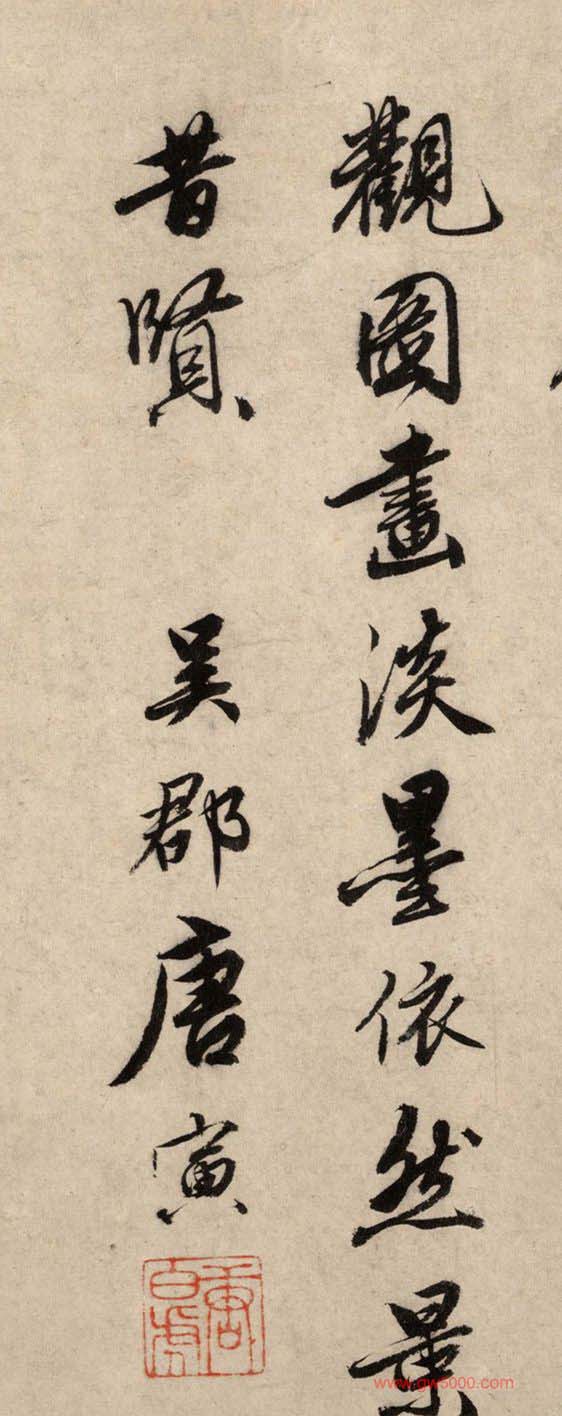 觀圖畫淡墨依然景
昔賢 吳郡唐寅
唐白虎
www.gw5000.com